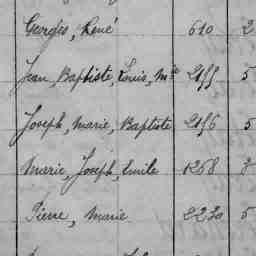 Georges, René 610 2
Jean, Baptiste, Louis, Mie 2155 5
Joseph, Marie, Baptiste 2156 5
Marie, Joseph, Emile 1268 3
Pierre, Marie 2230 5